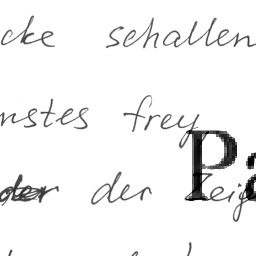 cke schallen
nstes frey
der der Zeig
Pa